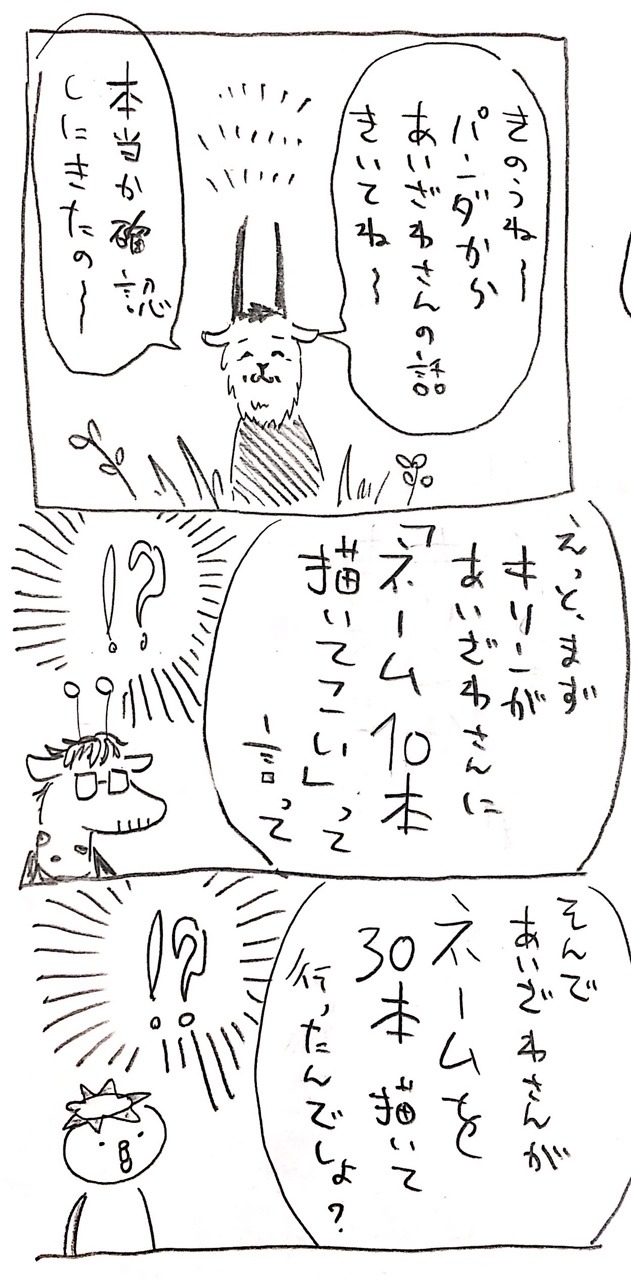 きのうね〜
パンダから
あいざわさんの話
きいてね〜
本当か確認
しにきたの〜
えっと、まず
キリンが
あいざわさんに
「ネーム10本
描いてこい」って
言って
!?
そんで
あいざわさんが
ネームを
30本 描いて
行ったんでしょ?
!?